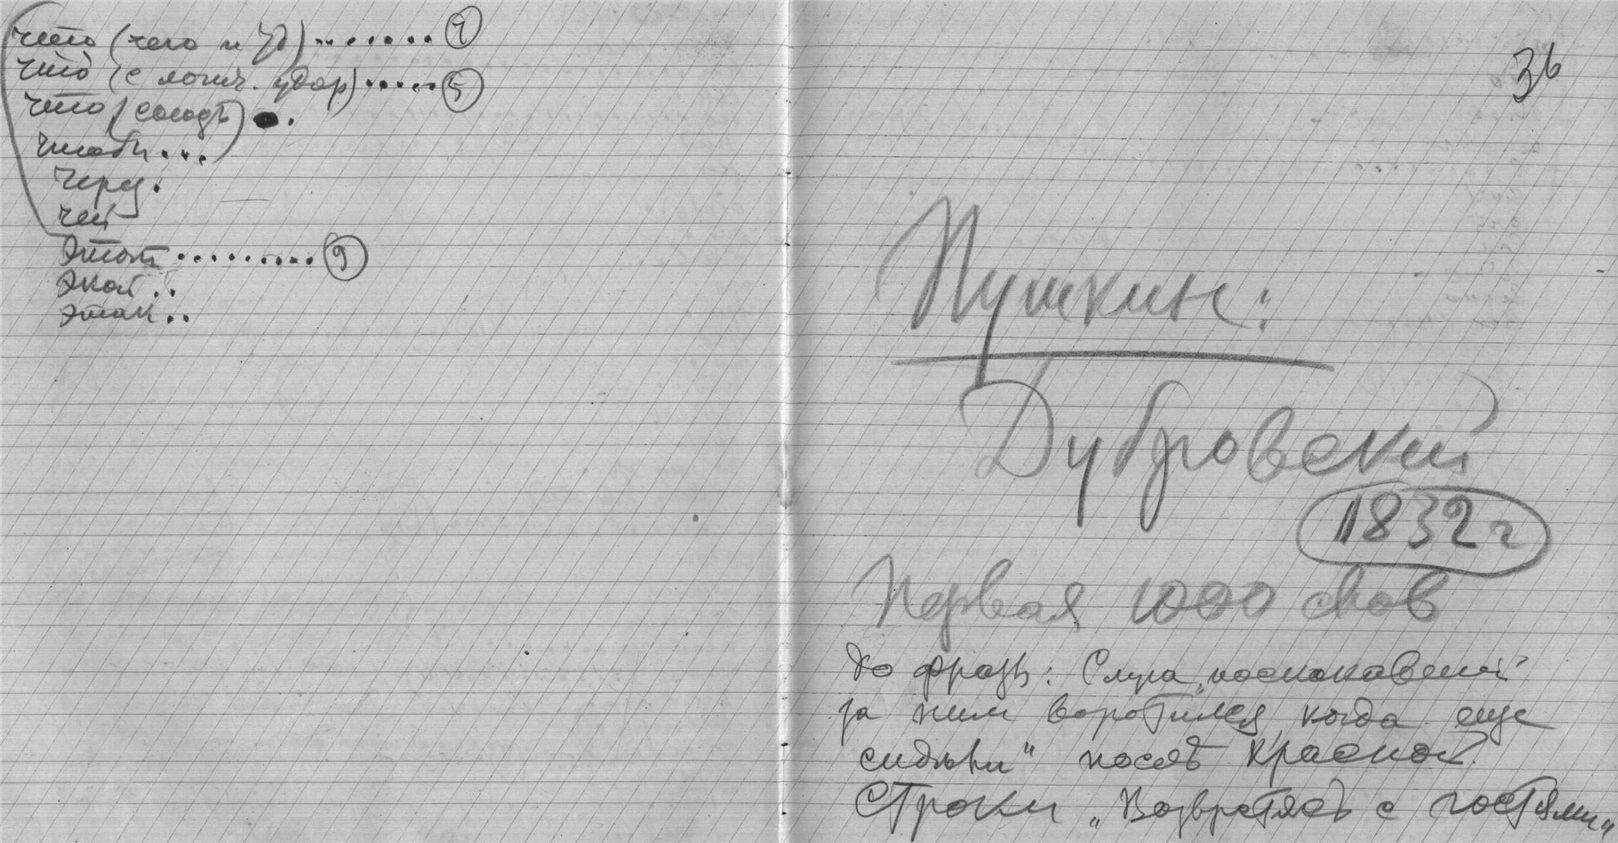 что (чего и др) ........ 7
что (с логич. удар) ..... 5
что (союзъ) .
чтобы ...
через .
чей
Этотъ .......... 9
Экой ..
этак ..
36
Пушкин:
Дубровский
1832 г
Первая 1000 слов
до фразы: Слуга, поскакавший
за ним воротился, когда еще
сидѣли" послѣ красной
строки „Возвратясь с гостями"